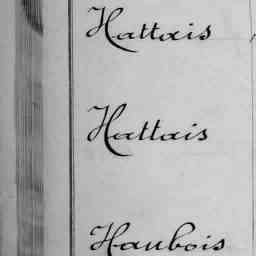 Hattais
Hattais
Haubois